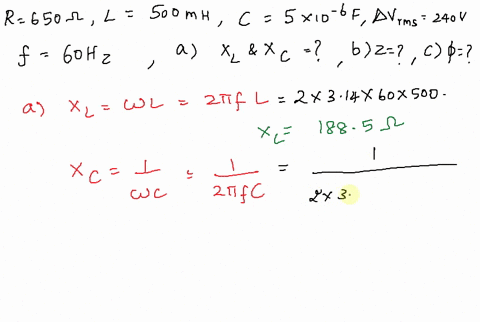 R=650Ω, L = 500mH, C = 5×10⁻⁶F, ΔVrms=240V
f = 60Hz , a) XL & XC =? , b) z=? , c) ϕ=?
a) XL = ωL = 2πfL = 2×3.14×60×500.
XL= 188.5 Ω
XC = 1/ωC = 1/2πfC = 1/2×3.